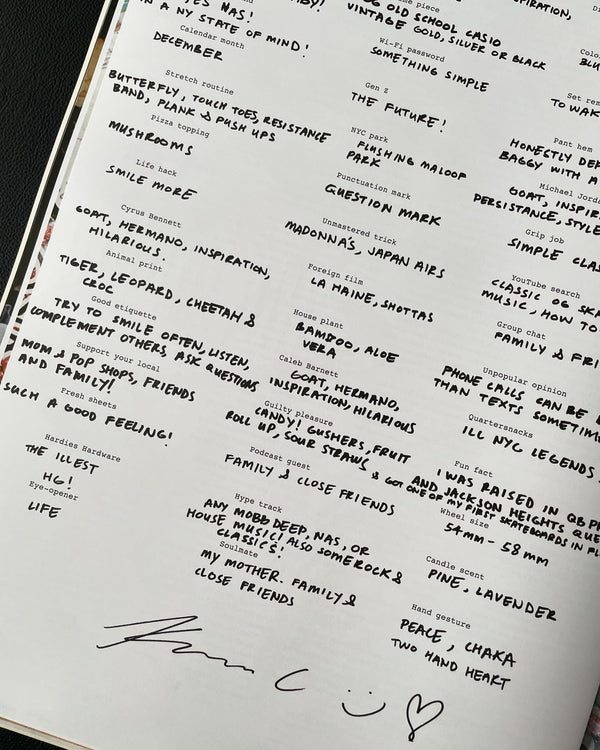 YES NAS!
IN A NY STATE OF MIND!
Calendar month
DECEMBER
Stretch routine
BUTTERFLY, TOUCH TOES, RESISTANCE
BAND, PLANK & PUSH UPS
Pizza topping
MUSHROOMS
Life hack
SMILE MORE
Cyrus Bennett
GOAT, HERMANO, INSPIRATION,
HILARIOUS.
Animal print
TIGER, LEOPARD, CHEETAH &
CROC
Good etiquette
TRY TO SMILE OFTEN, LISTEN,
COMPLEMENT OTHERS, ASK QUESTIONS
Support your local
MOM & POP SHOPS, FRIENDS
AND FAMILY!
Fresh sheets
SUCH A GOOD FEELING!
Hardies Hardware
THE ILLEST
HG!
Eye-opener
LIFE
piece
OG OLD SCHOOL CASIO
VINTAGE GOLD, SILVER OR BLACK
Wi-Fi password
SOMETHING SIMPLE
Gen Z
THE FUTURE!
NYC park
FLUSHING MALOOF
PARK
Punctuation mark
QUESTION MARK
Unmastered trick
MADONNA'S, JAPAN AIRS
Foreign film
LA HAINE, SHOTTAS
House plant
BAMBOO, ALOE
VERA
Caleb Barnett
GOAT, HERMANO,
INSPIRATION, HILARIOUS
Guilty pleasure
CANDY! GUSHERS, FRUIT
ROLL UP, SOUR STRAWS
Podcast guest
FAMILY & CLOSE FRIENDS
Hype track
ANY MOBB DEEP, NAS, OR
HOUSE MUSIC! ALSO SOME ROCK &
CLASSICS!
Soulmate
MY MOTHER. FAMILY &
CLOSE FRIENDS
INSPIRATION,
Set
TO
Pant hem
HONESTLY
BAGGY WITH A
Michael
GOAT,
PERSISTANCE, STYLE
Grip job
SIMPLE
YouTube search
CLASSIC OG
MUSIC, HOW TO
Group chat
FAMILY &
Unpopular opinion
PHONE CALLS CAN BE
THAN TEXTS
Quartersnacks
ILL NYC LEGENDS
Fun fact
I WAS RAISED IN QB
AND JACKSON HEIGHTS
& GOT ONE OF MY FIRST SKATEBOARDS IN
Wheel size
54mm - 58mm
Candle scent
PINE, LAVENDER
Hand gesture
PEACE, CHAKA
TWO HAND HEART